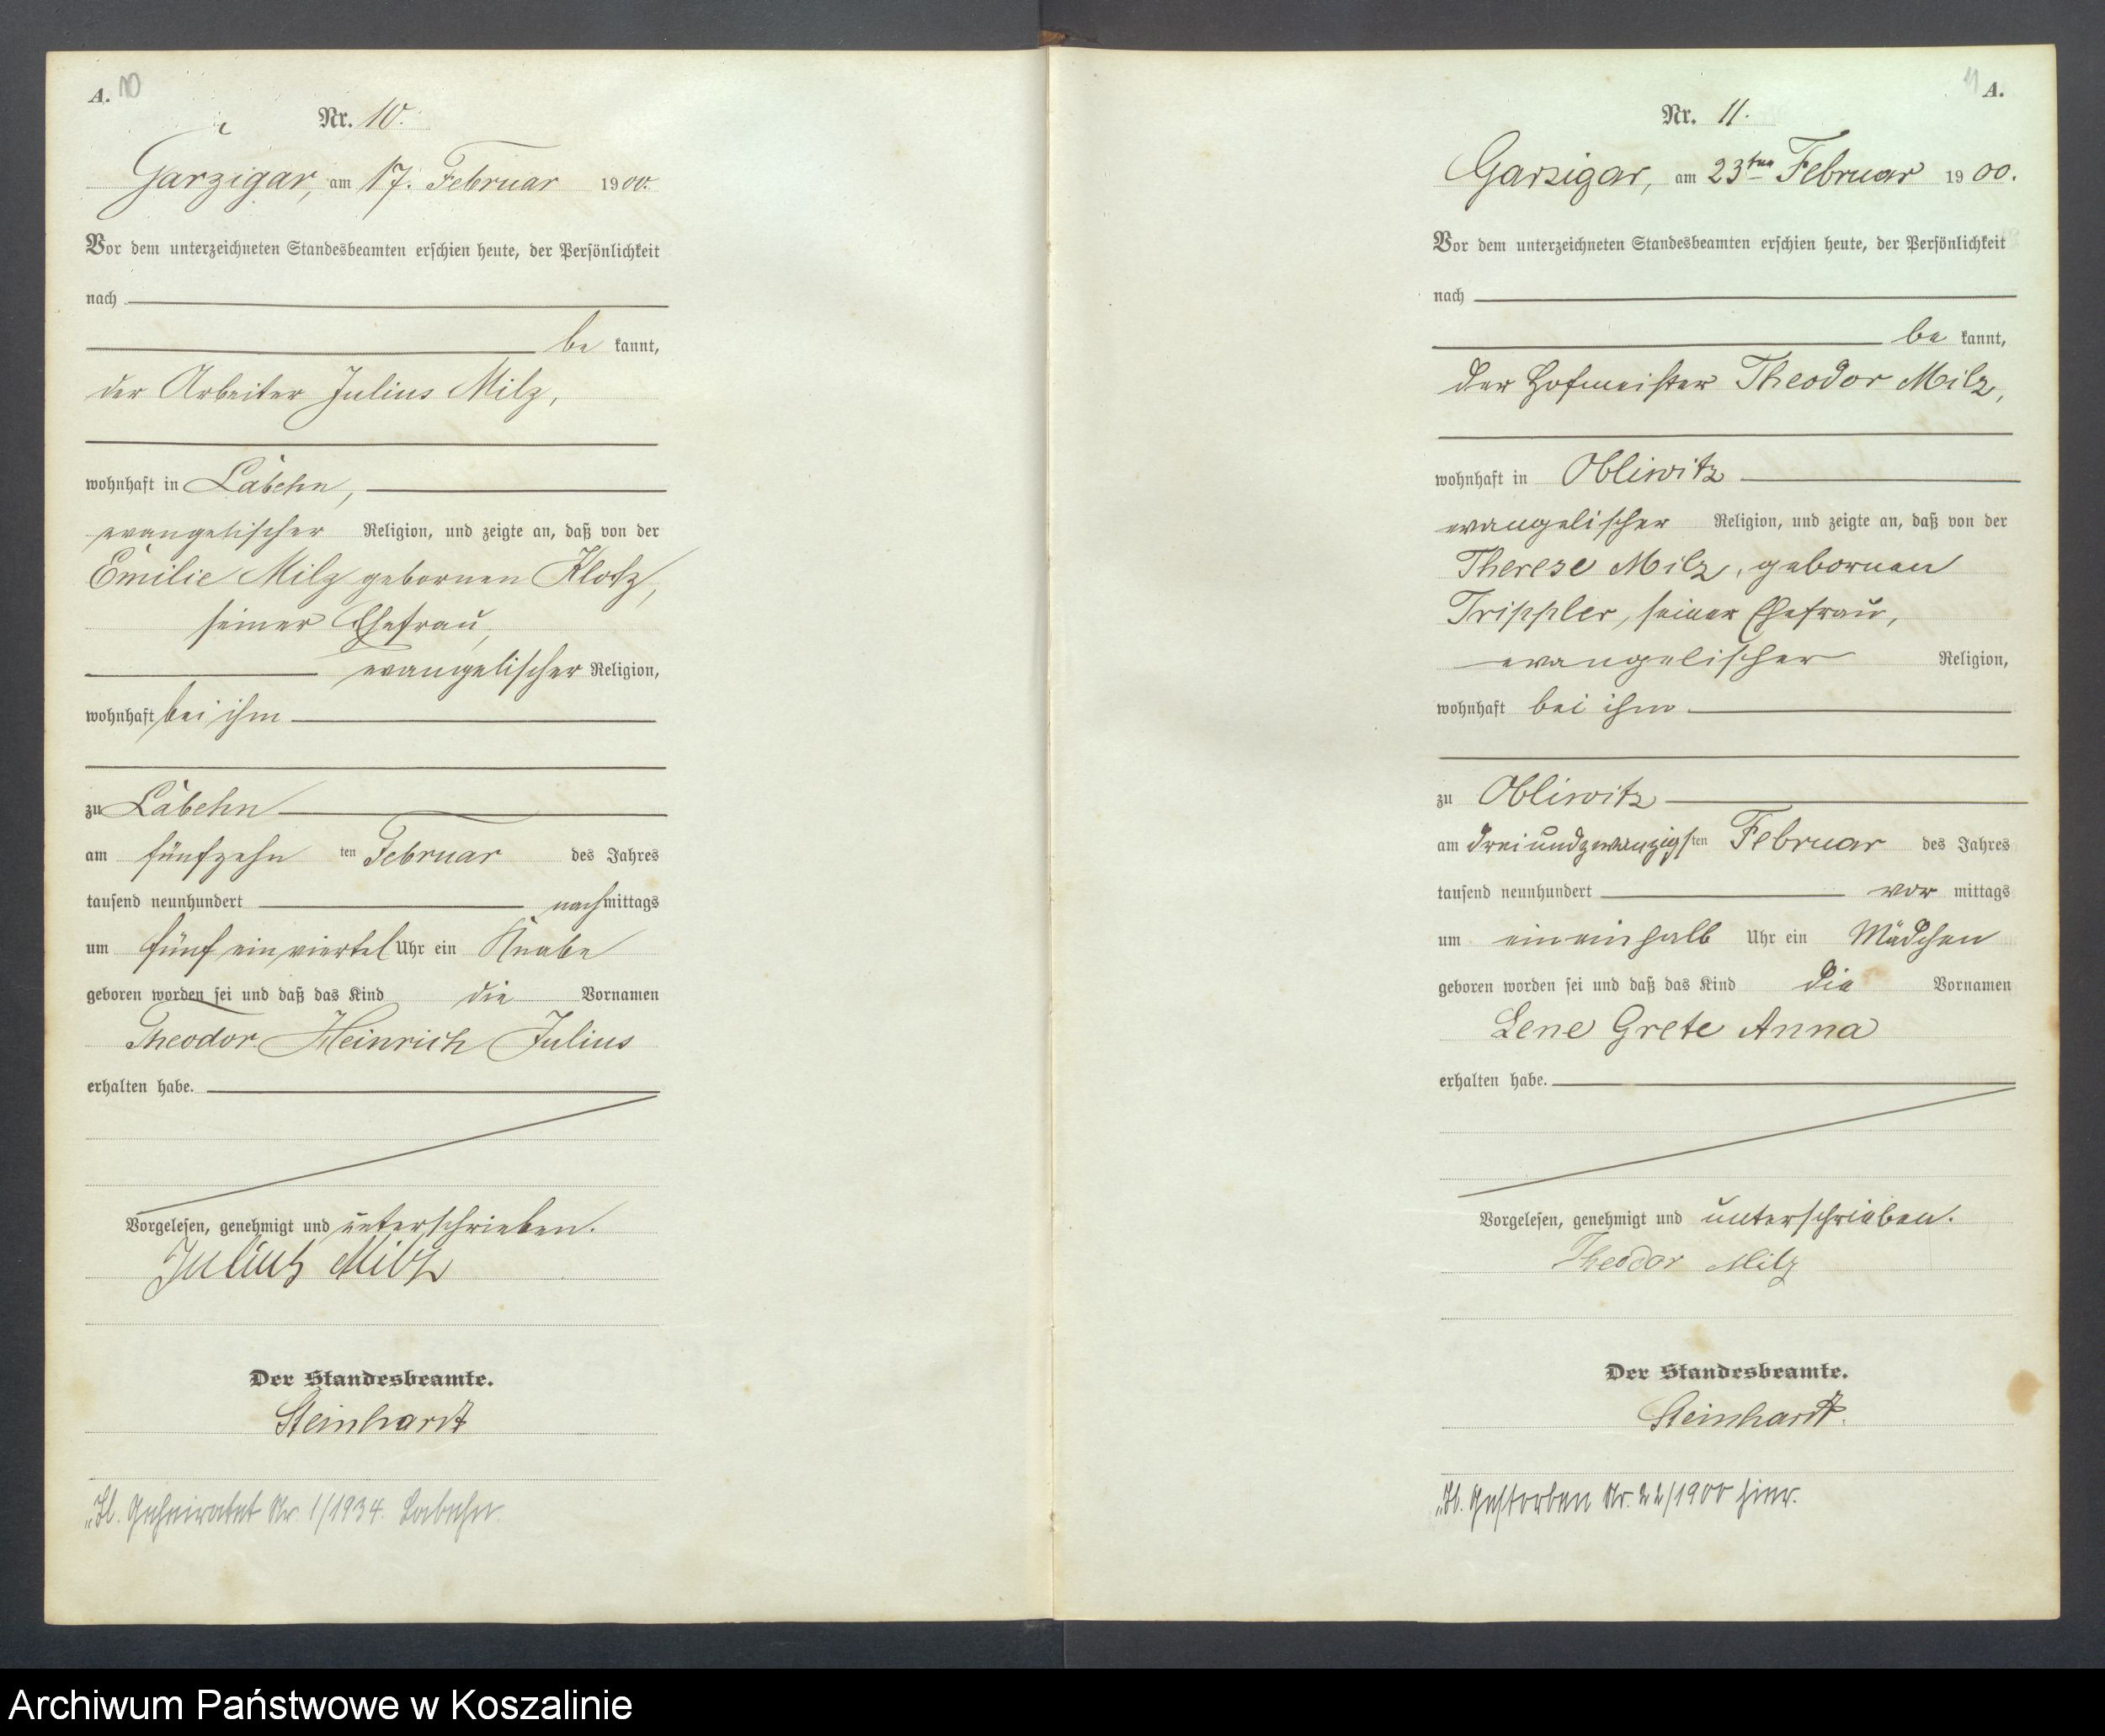 A. 10
Nr. 10.
Garzigar, am 17. Februar 1900.
Vor dem unterzeichneten Standesbeamten erschien heute, der Persönlichkeit
nach
be kannt,
der Arbeiter Julius Milz,
wohnhaft in Labehn,
evangelischer Religion, und zeigte an, daß von der
Emilie Milz gebornen Klotz,
seiner Ehefrau,
evangelischer Religion,
wohnhaft bei ihm
zu Labehn
am fünfzehn ten Februar des Jahres
tausend neunhundert nachmittags
um fünf einviertel Uhr ein Knabe
geboren worden sei und daß das Kind die Vornamen
Theodor Heinrich Julius
erhalten habe.
Vorgelesen, genehmigt und unterschrieben.
Julius Milz
Der Standesbeamte.
Steinhardt
Geheiratet Nr. 1/1934. Labehn.
11 A.
Nr. 11.
Garzigar, am 23ten Februar 1900.
Vor dem unterzeichneten Standesbeamten erschien heute, der Persönlichkeit
nach
be kannt,
der Hofmeister Theodor Milz,
wohnhaft in Obliwitz
evangelischer Religion, und zeigte an, daß von der
Therese Milz, gebornen
Trippler, seiner Ehefrau,
evangelischer Religion,
wohnhaft bei ihm
zu Obliwitz
am dreiundzwanzigsten Februar des Jahres
tausend neunhundert vor mittags
um eineinhalb Uhr ein Mädchen
geboren worden sei und daß das Kind die Vornamen
Lene Grete Anna
erhalten habe.
Vorgelesen, genehmigt und unterschrieben.
Theodor Milz
Der Standesbeamte.
Steinhardt.
Gestorben Nr. 22/1900 hier.
Archiwum Państwowe w Koszalinie